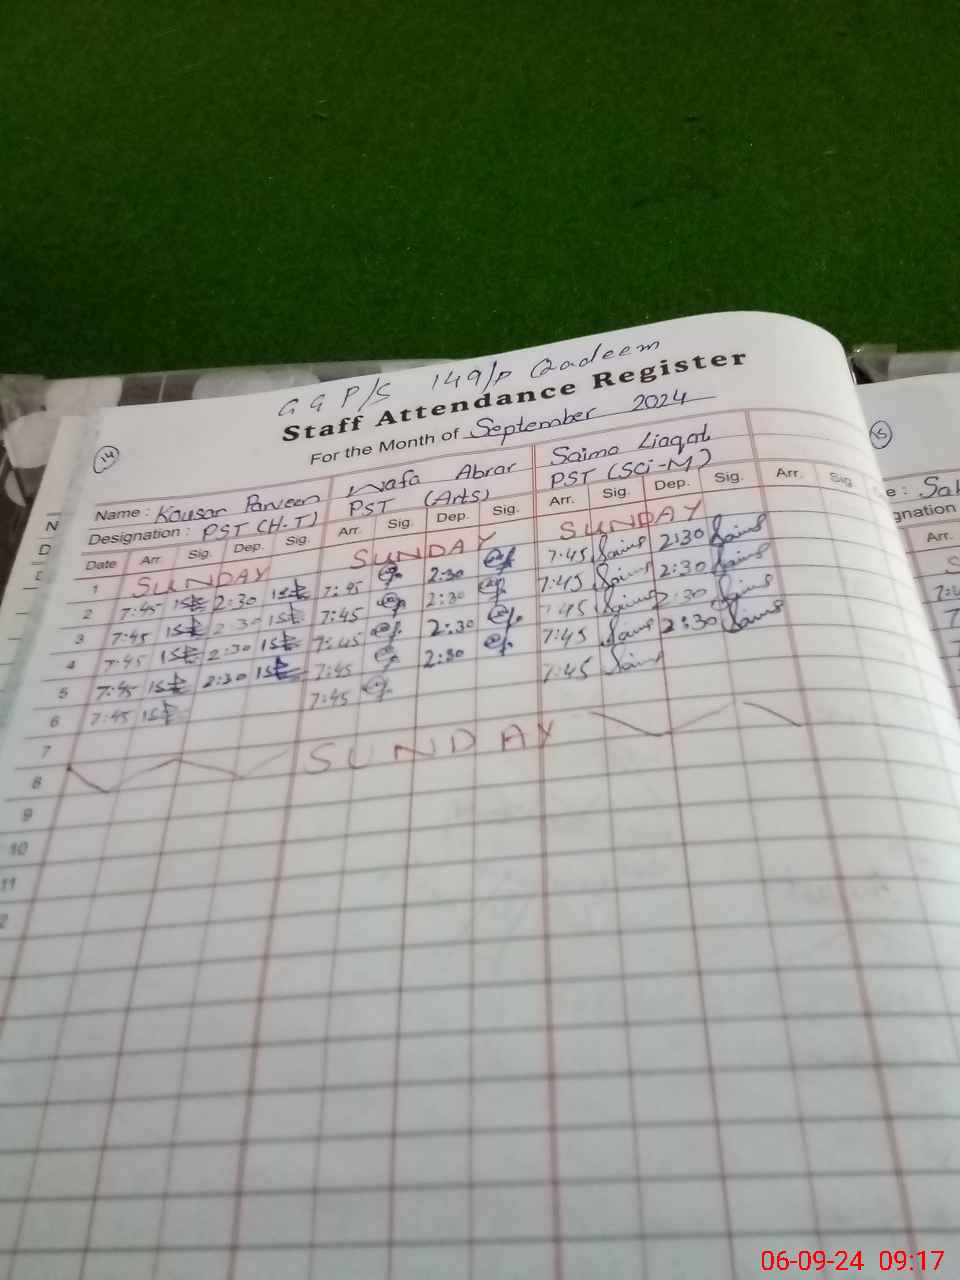 GG P/S 149/P Qadeem
Staff Attendance Register
For the Month of September 2024
14
15
Name : Kousar Parveen Wafa Abrar Saima Liaqat
Designation : PST (H-T) PST (Arts) PST (Sci-M)
Date Arr. Sig. Dep. Sig. Arr. Sig. Dep. Sig. Arr. Sig. Dep. Sig. Arr. Sig.
1 SUNDAY SUNDAY SUNDAY
2 7:45 2:30 7:45 2:30 7:45 2:30
3 7:45 2:30 7:45 2:30 7:45 2:30
4 7:45 2:30 7:45 2:30 7:45 2:30
5 7:45 2:30 7:45 2:30 7:45 2:30
6 7:45 7:45 7:45
7
8 SUNDAY
9
10
11
2
Arr.
06-09-24 09:17